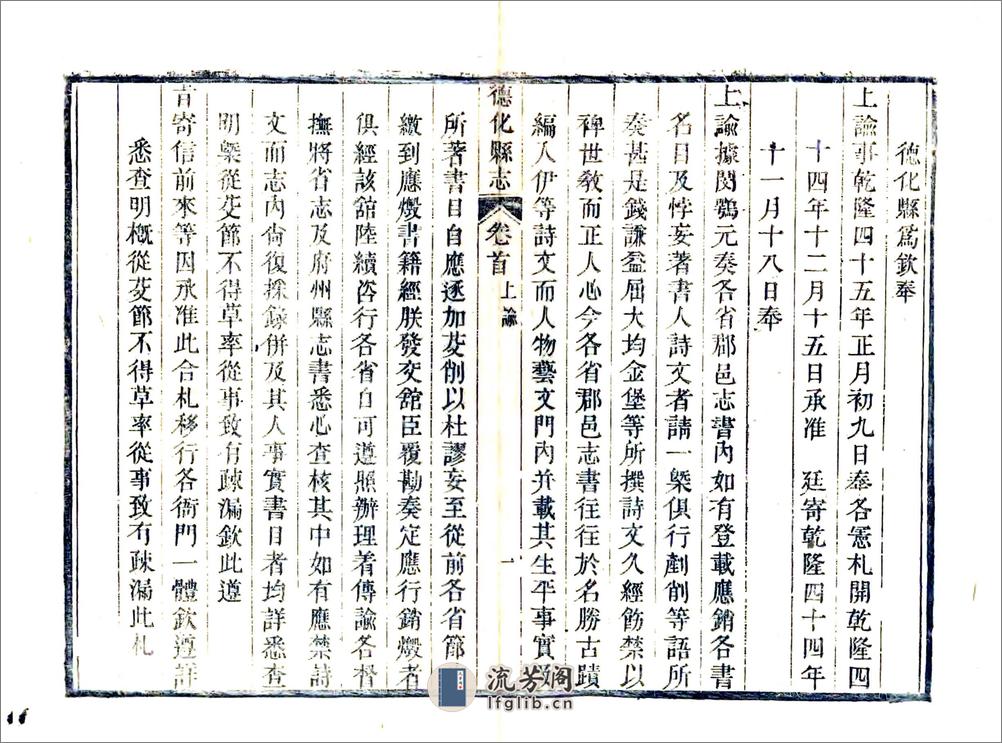 德化縣爲欽奉
上諭事乾隆四十五年正月初九日奉各憲札開乾隆四
十四年十二月十五日承准 廷寄乾隆四十四年
十一月十八日奉
上諭據閔鶚元奏各省郡邑志書內如有登載應銷各書
名目及悖妄著書人詩文者請一槩俱行剷削等語所
奏甚是錢謙益屈大均金堡等所撰詩文久經飭禁以
裨世敎而正人心今各省郡邑志書往往於名勝古蹟
編入伊等詩文而人物藝文門內并載其生平事實
德化縣志 卷首 上諭 一
所著書目自應逐加芟削以杜謬妄至從前各省節
繳到應燬書籍經朕發交舘臣覆勘奏定應行銷燬者
俱經該舘陸續咨行各省自可遵照辦理着傳諭各督
撫將省志及府州縣志書悉心查核其中如有應禁詩
文而志內尙復採錄併及其人事實書目者均詳悉查
明槩從芟節不得草率從事致有疎漏欽此遵
旨寄信前來等因承准此合札移行各衙門一體欽遵詳
悉查明槪從芟節不得草率從事致有疎漏此札
流芳阁
lfglib.cn
11